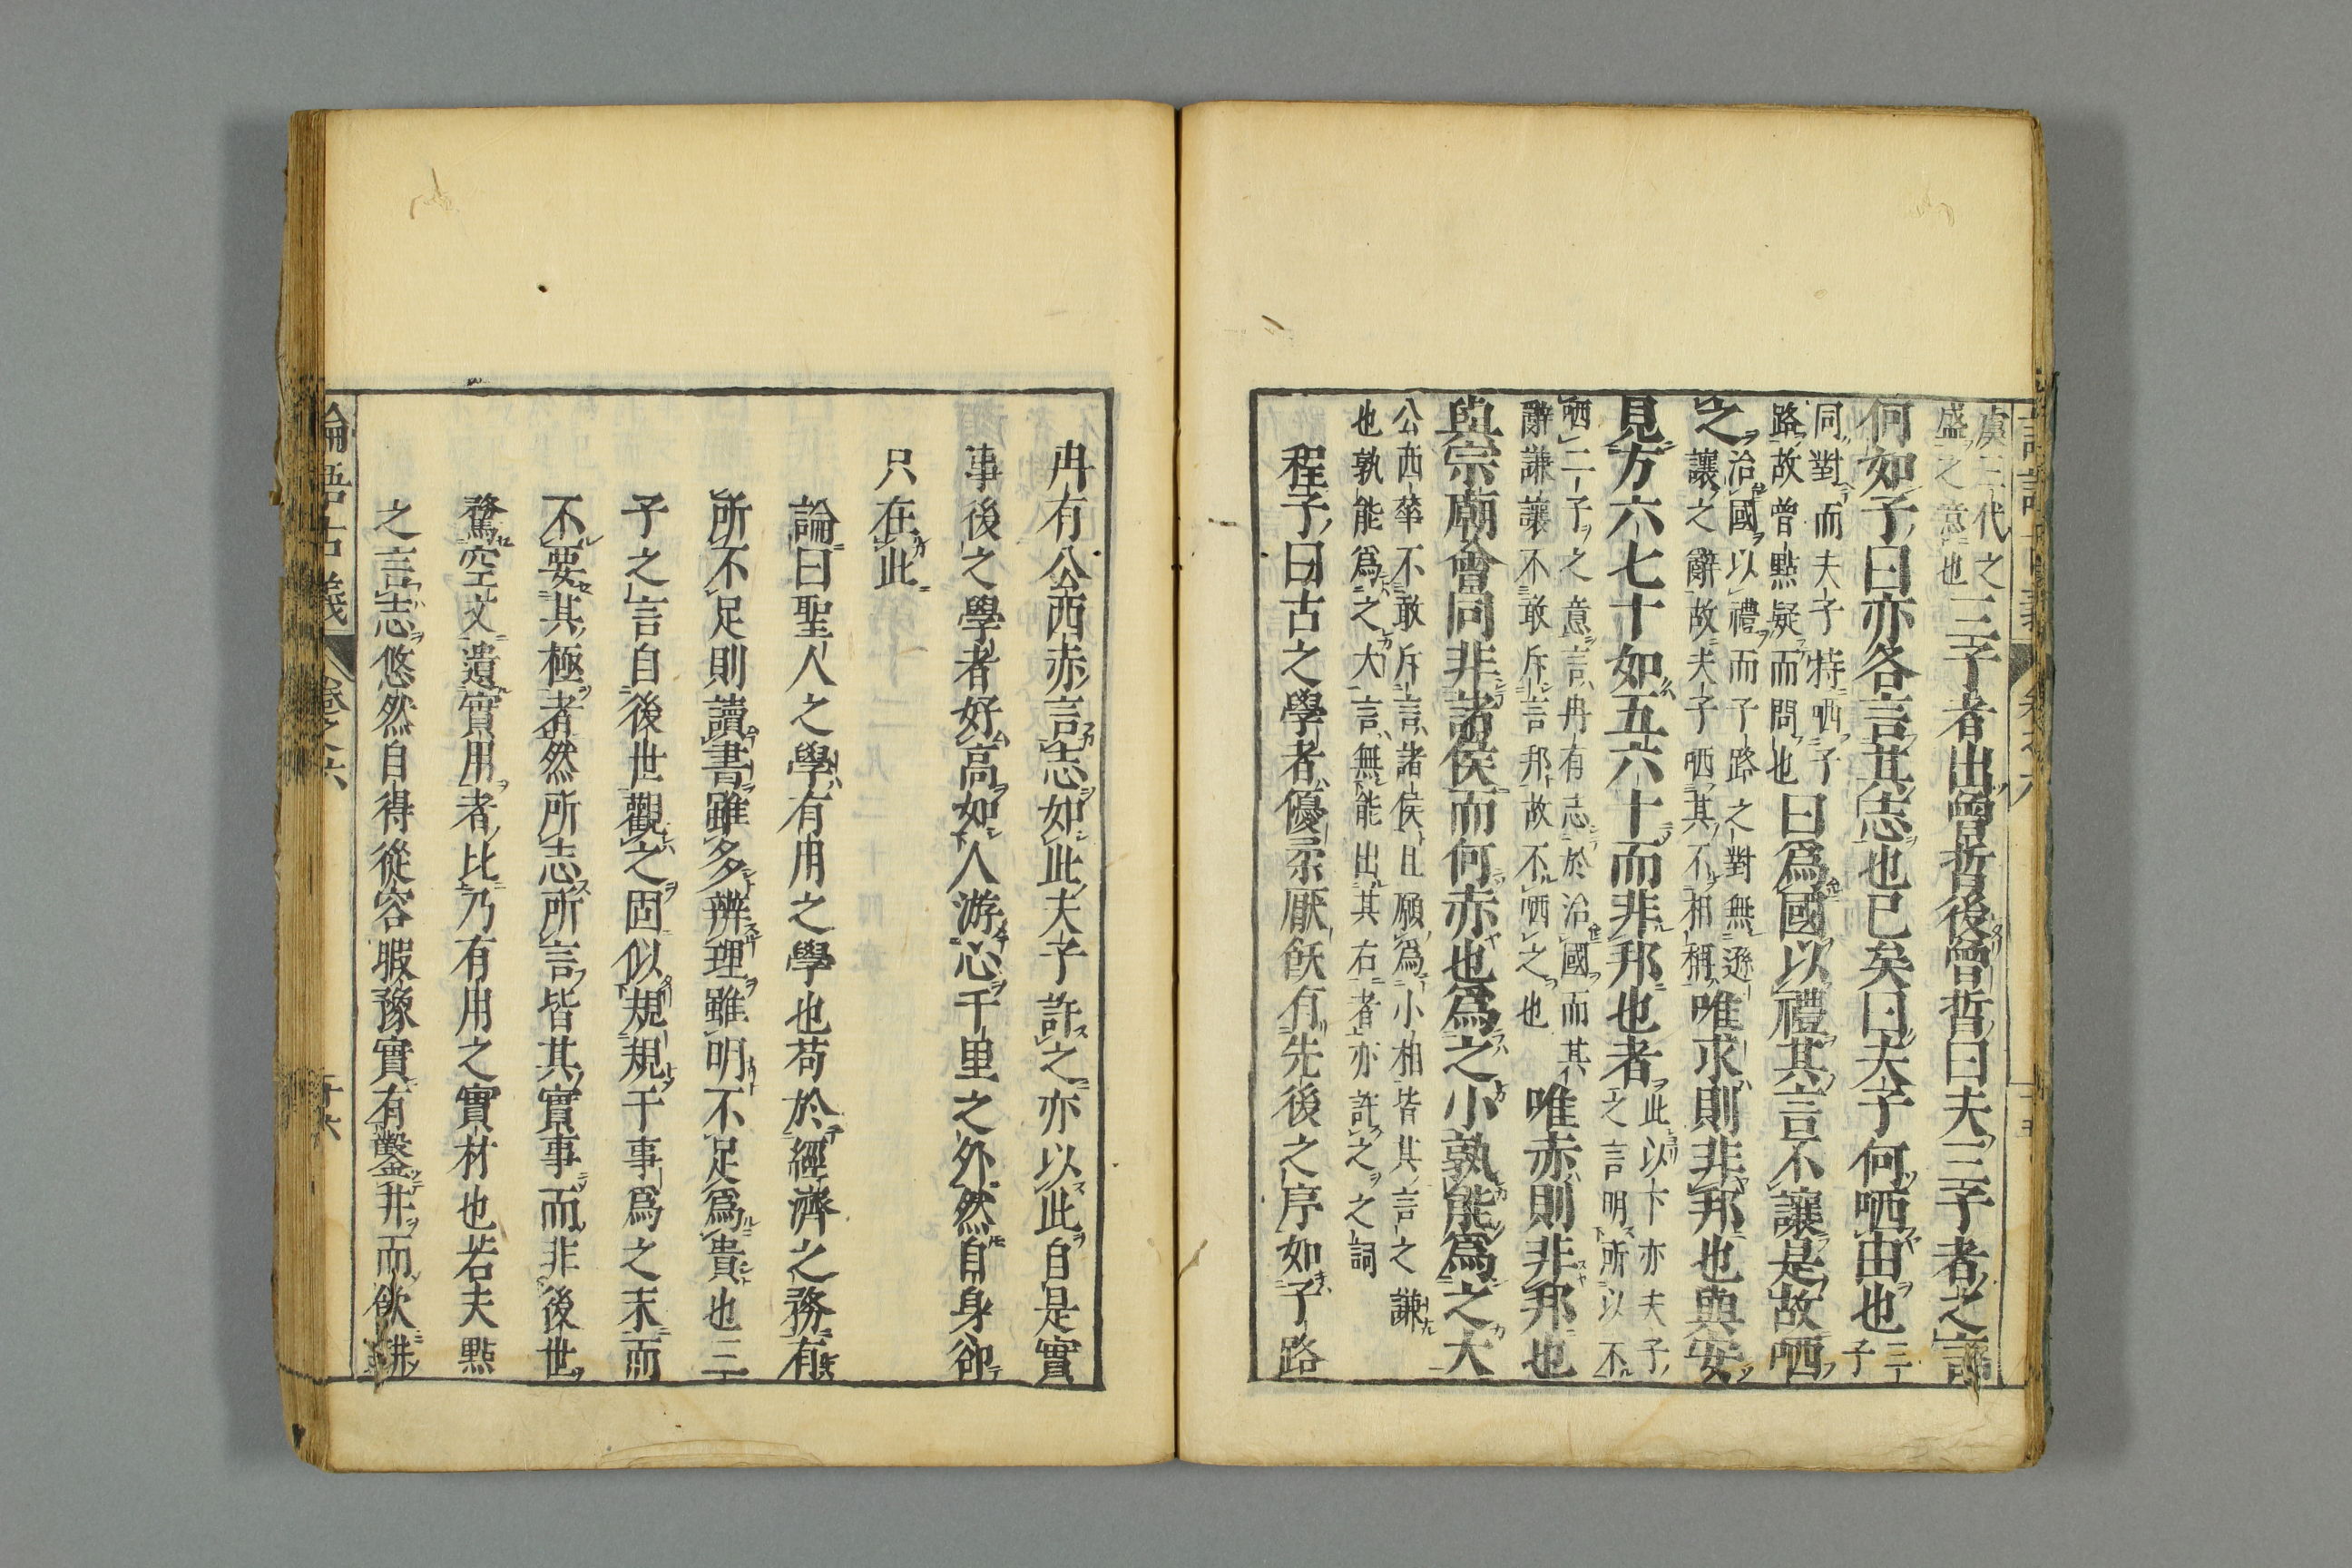 虞三代之
盛之意也
三子者出曾晳後曾晳曰夫三子者之言
何如子曰亦各言其志也已矣曰夫子何哂由也
三子
同對而夫子特哂子
路故曾點疑而問也
曰爲國以禮其言不讓是故哂
之
治國以禮而子路之對無遜
讓之辭故夫子哂其不相稱
唯求則非邦也與安
見方六七十如五六十而非邦也者
此以下亦夫子
之言明所以不
哂二子之意言冉有志於治國而其
辭謙讓不敢斥言邦故不哂之也
唯赤則非邦也
與宗廟會同非諸侯而何赤也爲之小孰能爲之大
公西華不敢斥言諸侯且願爲小相皆其言之謙
也孰能爲之大言無能出其右者亦許之之詞
程子曰古之學者優柔厭飫有先後之序如子路
冉有公西赤言志如此夫子許之亦以此自是實
事後之學者好高如人游心千里之外然自身卻
只在此
論曰聖人之學有用之學也苟於經濟之務有
所不足則讀書雖多辨理雖明不足爲貴也三
子之言自後世觀之固似規規于事爲之末而
不要其極者然所志所言皆其實事而非後世
騖空文遺實用者比乃有用之實材也若夫點
之言志悠然自得從容暇豫實有鑿井而飲耕
論語古義
卷之六
十六